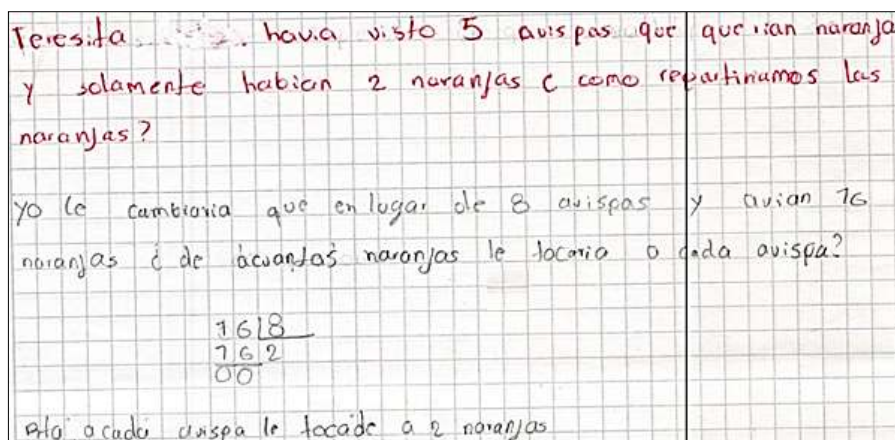 Teresita havia visto 5 avispas que querian naranja
y solamente habian 2 naranjas ¿ como repartiriamos las
naranjas?
yo le cambiaria que en lugar de 8 avispas y avian 16
naranjas ¿ de acuantas naranjas le tocaria a cada avispa?
16 8
16 2
00
Rta a cada avispa le toca de a 2 naranjas